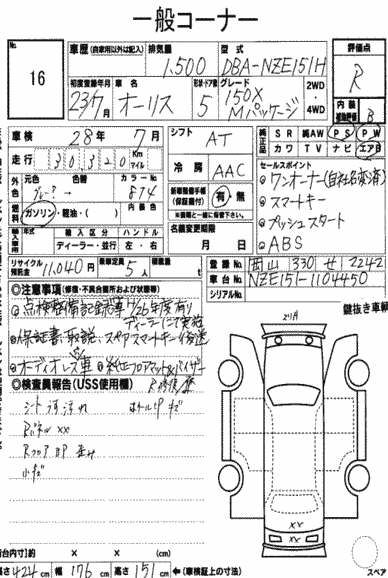 一般コーナー
No.
16
車歴(自家用以外は記入)
排気量
型式
評価点
1,500
DBA-NZE151H
R
初度登録年月
車名
形状・ドア数
グレード
2WD
・
4WD
23/7月
オーリス
5
150X
Mパッケージ
内装
補助評価
B
車検
28年7月
シフト
AT
純正品
SR
純AW
PS
PW
カワ
TV
ナビ
エアB
走行
30320
Km
マイル
冷房
AAC
セールスポイント
ワンオーナー(自社品質済)
スマートキー
プッシュスタート
ABS
外色
元色
色替
カラーNo.
874
燃料
ガソリン・軽油・( )
内装色
新車整備手帳
(保証書付)
有・無
※書類と一緒に後日
輸入車
輸入区分
ハンドル
ディーラー・並行
左・右
名義変更期限
月 日
リサイクル
預託金
11,040円
乗車定員
5人
積載量
t
登録No.
岡山 330 せ 2242
車台No.
NZE151-1104450
シリアルNo.
◎注意事項(修復・不具合箇所および状態等)
鍵抜き車輌
点検整備記録簿 H26年度有り
ディーラーにて実施
保証書・取説、スペアスマートキー後送
オーディオレス車
純正フロアマット&バイザー
◎検査員報告(USS使用欄)
シート
R
XX
Rフロア
小キズ
XX
XX
荷台内寸)約
×
×
(cm)
長さ424cm
幅176cm
高さ151cm
←(車検証上の寸法)
スペア